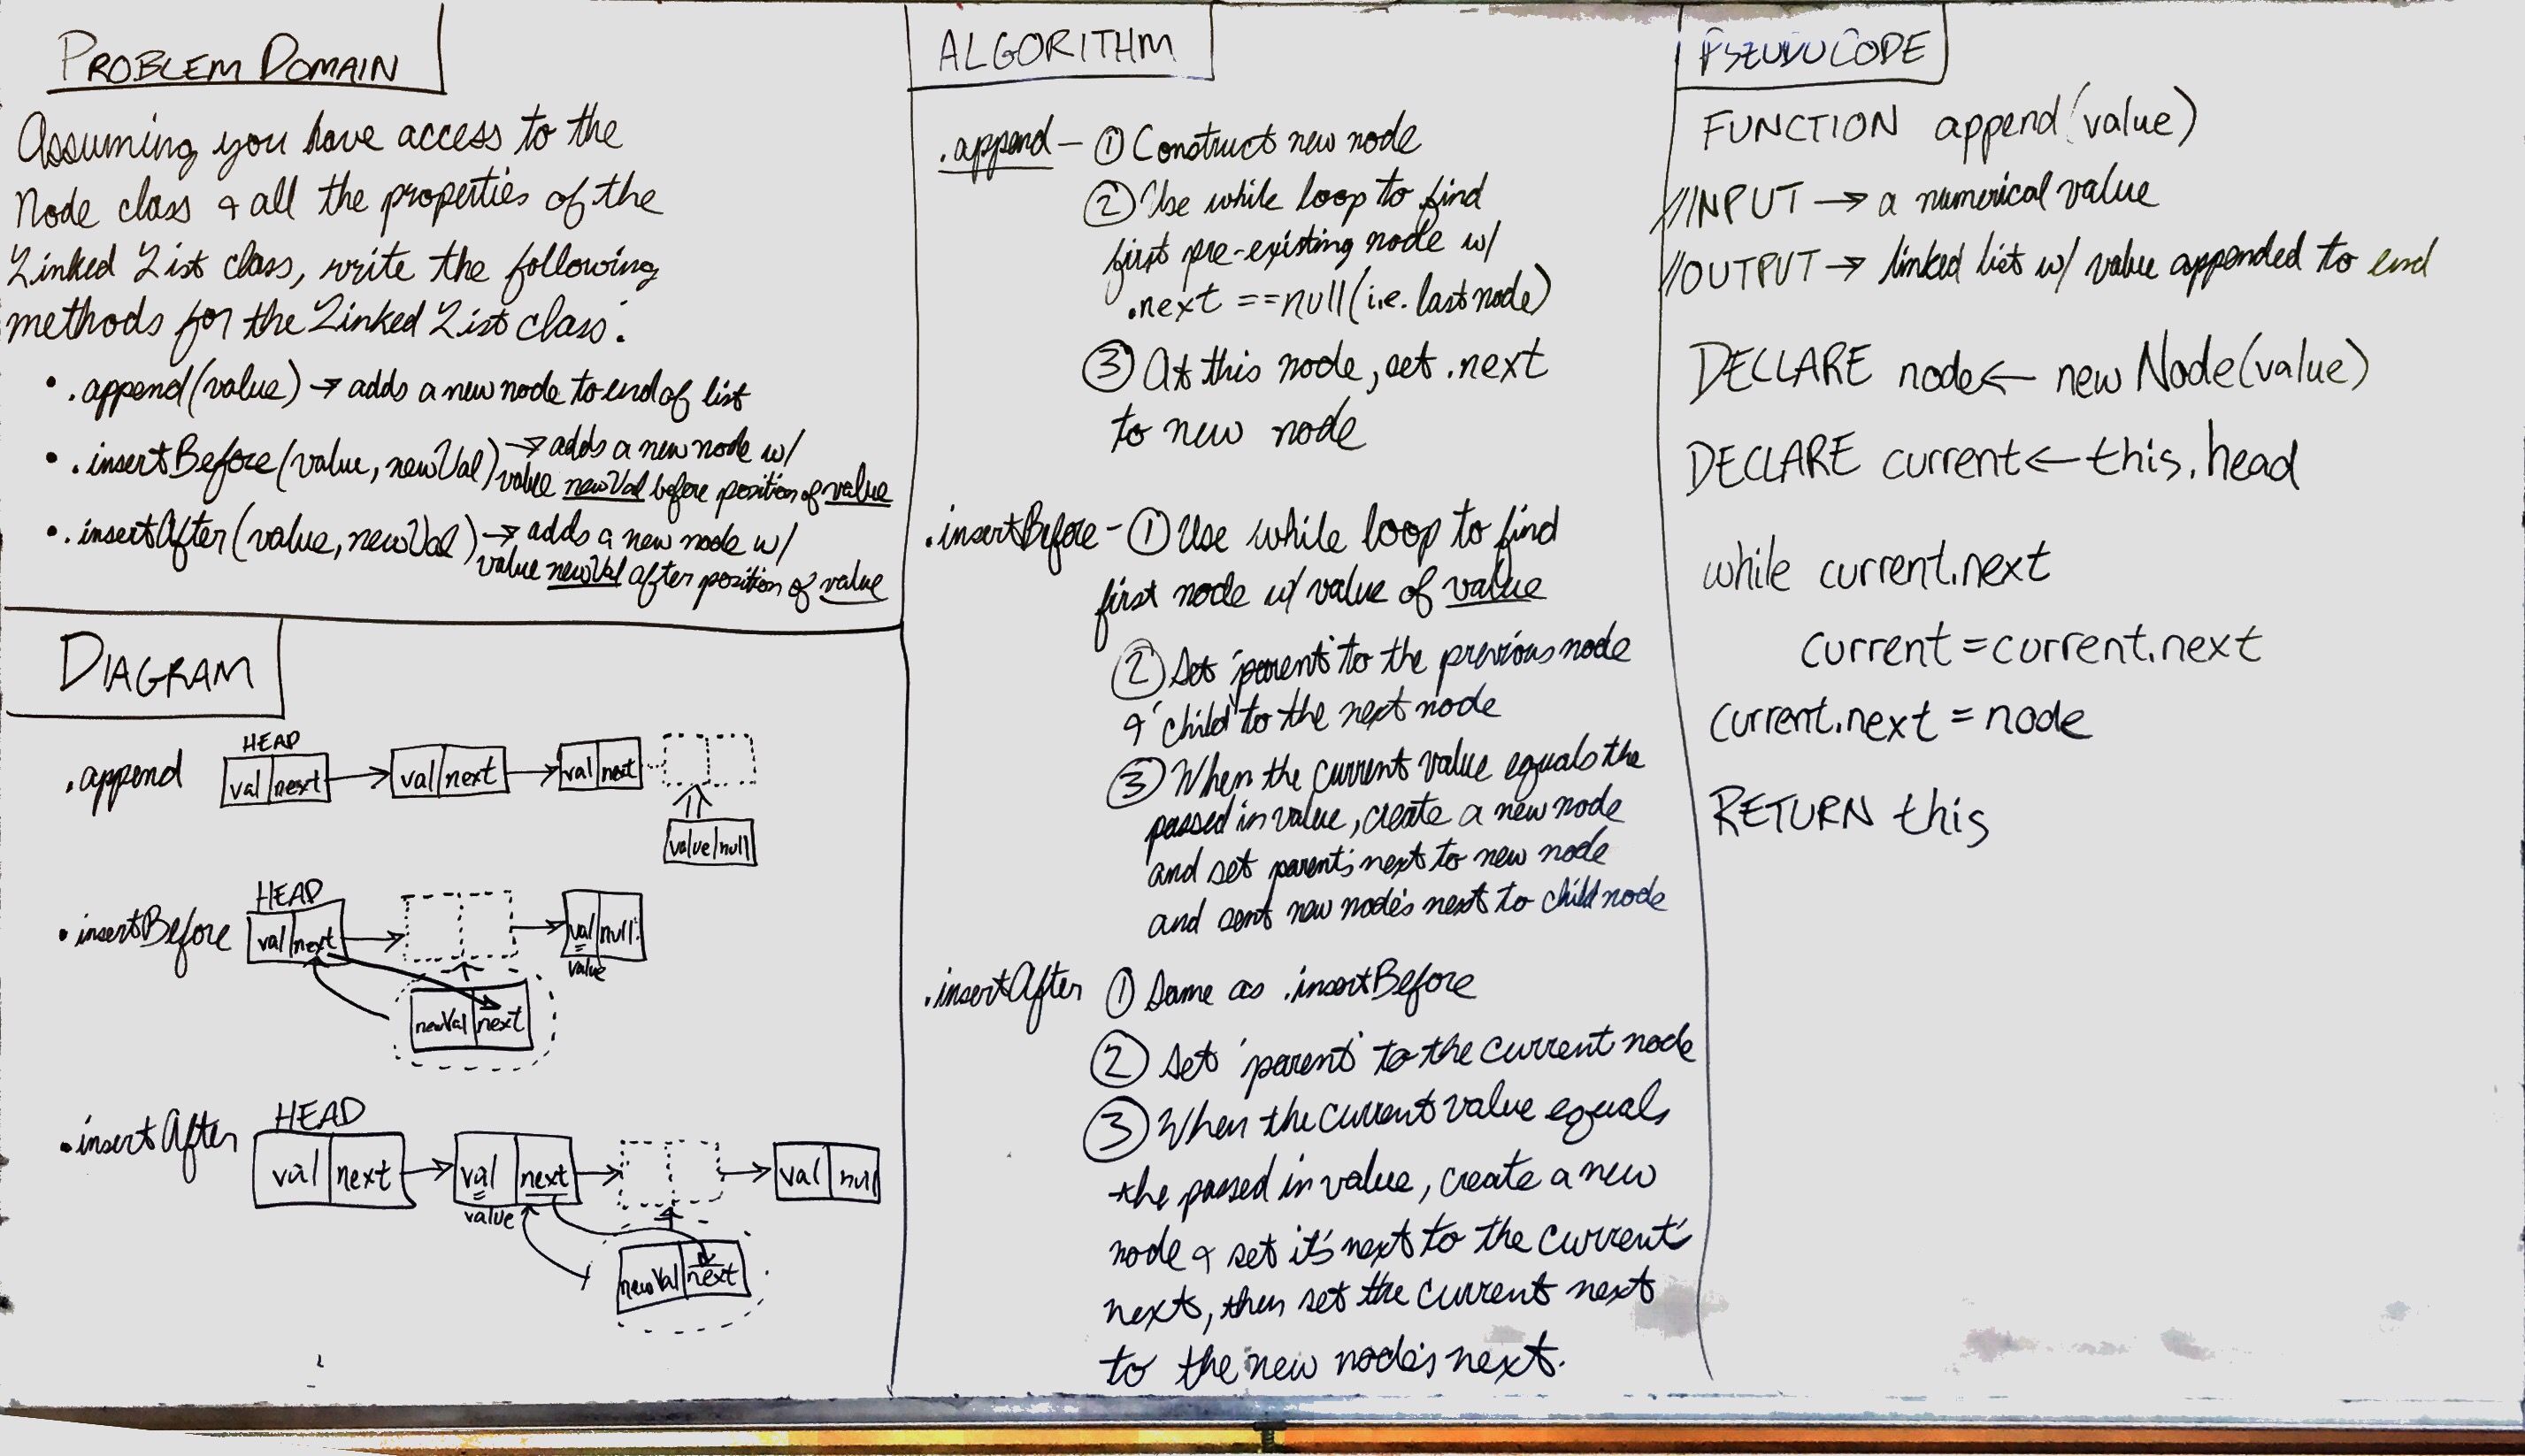 PROBLEM DOMAIN
Assuming you have access to the
Node class & all the properties of the
Linked List class, write the following
methods for the Linked List class:
• .append(value) → adds a new node to end of list
• .insertBefore(value, newVal) → adds a new node w/
value newVal before position of value
• .insertAfter(value, newVal) → adds a new node w/
value newVal after position of value
DIAGRAM
.append
HEAD
val next
val next
val next
value null
.insertBefore
HEAD
val next
val null
value
newVal next
.insertAfter
HEAD
val next
val next
val null
value
newVal next
ALGORITHM
.append - ① Construct new node
② Use while loop to find
first pre-existing node w/
.next == null (i.e. last node)
③ At this node, set .next
to new node
.insertBefore - ① Use while loop to find
first node w/ value of value
② Set 'parent' to the previous node
& 'child' to the next node
③ When the current value equals the
passed in value, create a new node
and set parent's next to new node
and sent new node's next to child node
.insertAfter ① Same as .insertBefore
② Set 'parent' to the current node
③ When the current value equals
the passed in value, create a new
node & set it's next to the current's
next, then set the current next
to the new node's next.
PSEUDUCODE
FUNCTION append(value)
//INPUT → a numerical value
//OUTPUT → linked list w/ value appended to end
DECLARE node ← new Node(value)
DECLARE current ← this.head
while current.next
current = current.next
current.next = node
RETURN this